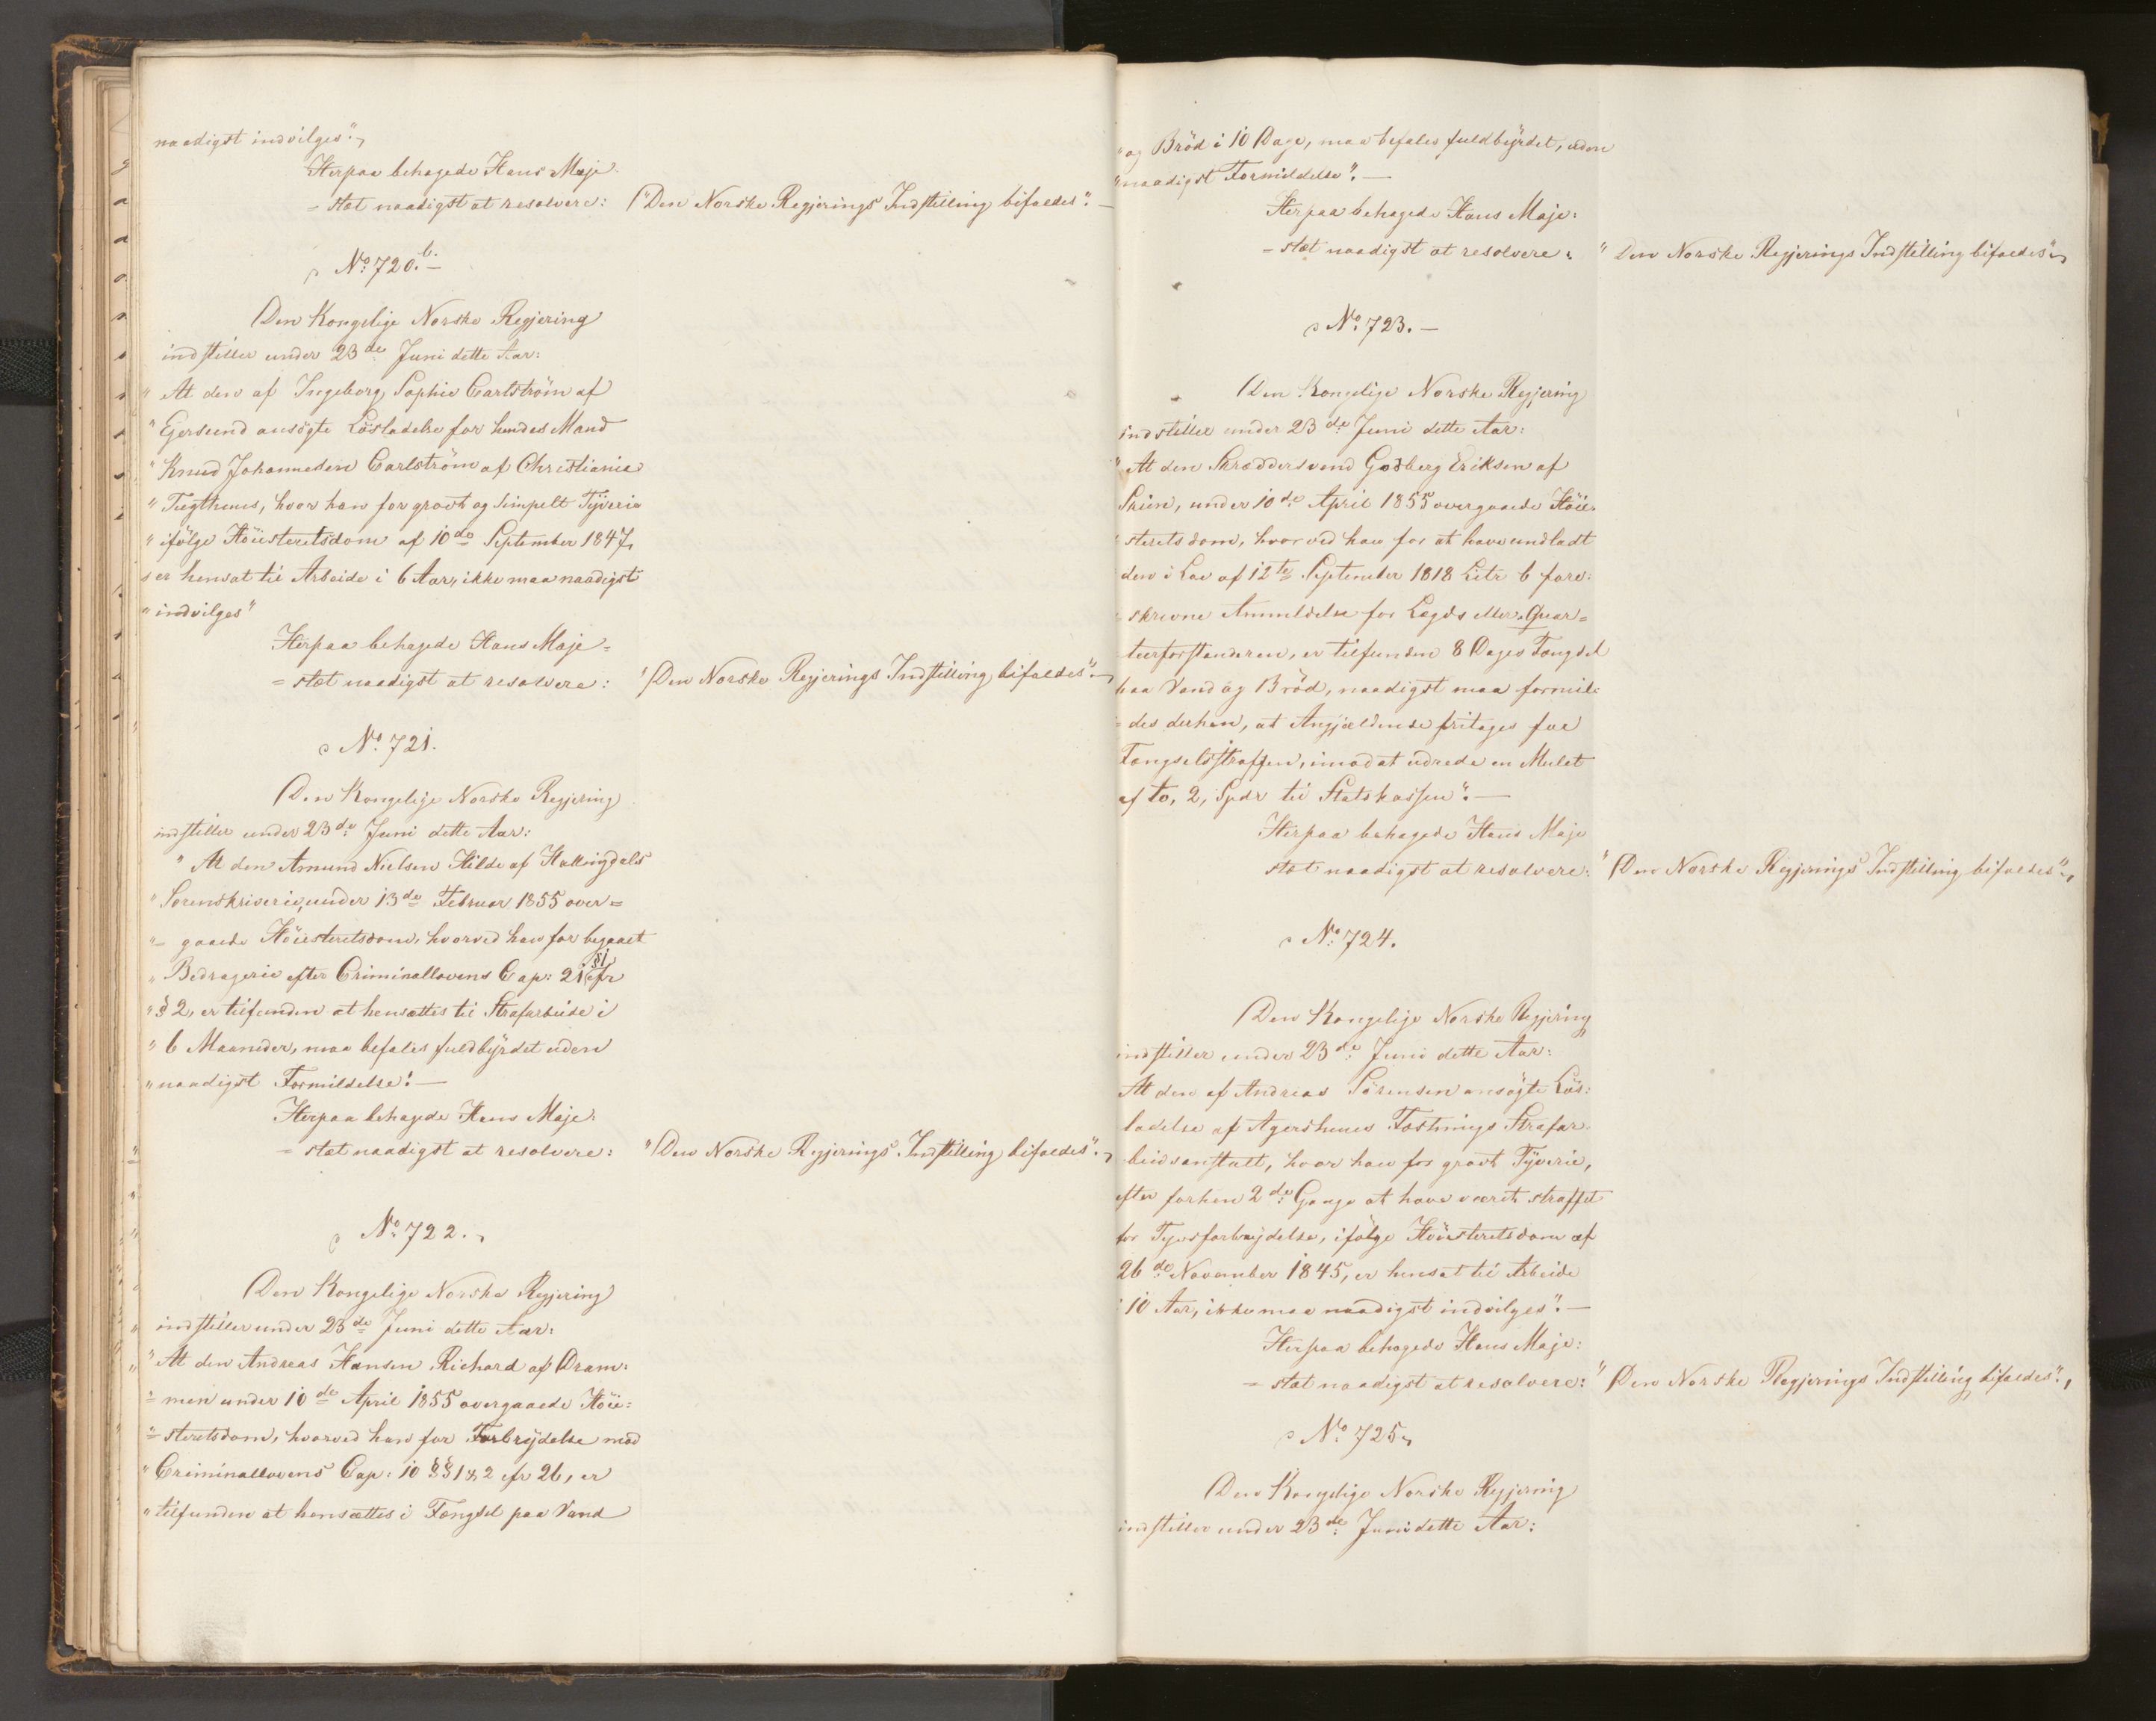 naadigst indvilges".
Herpaa behagede Hans Maje-
=stæt naadigst at resolvere: "Den Norske Regjerings Indstilling bifaldes".
No 720.b.
Den Kongelige Norske Regjering
indstiller under 23de Juni dette Aar:
"At den af Ingeborg Sophie Carlström af
"Egersund ansögte Lösladelse for hendes Mand
"Knud Johannesen Carlström af Christiania
"Tugthuus, hvor han for grovt og simpelt Tyverie
"ifölge Höiesteretsdom af 10de September 1847,
"er hensat til Arbeide i 6 Aar, ikke maa naadigst
"indvilges"
Herpaa behagede Hans Maje=
=stæt naadigst at resolvere: "Den Norske Regjerings Indstilling bifaldes".
No 721.
Den Kongelige Norske Regjering
indstiller under 23de Juni dette Aar:
"At den Amund Nielsen Hilde af Hallingdals
"Sorenskriverie, under 13de Februar 1855 over=
"=gaaede Höiesteretsdom, hvorved han for begaaet
"Bedragerie efter Criminallovens Cap: 21 §1 cfr
"§ 2, er tilfunden at hensættes til Strafarbeide i
"6 Maaneder, maa befales fuldbyrdet uden
"naadigst Formildelse". —
Herpaa behagede Hans Maje-
=stæt naadigst at resolvere: "Den Norske Regjerings Indstilling bifaldes".
No 722.
Den Kongelige Norske Regjering
indstiller under 23de Juni dette Aar:
"At den Andreas Hansen Richard af Dram:
"=men under 10de April 1855 overgaaede Höie:
"=steretsdom, hvorved han for Forbrydelse mod
"Criminallovens Cap: 10 §§ 1 & 2 cfr 26, er
"tilfunden at hensættes i Fængsel paa Vand
"og Bröd i 10 Dage, maa befales fuldbyrdet, uden
"naadigst Formildelse". —
Herpaa behagede Hans Maje:
=stæt naadigst at resolvere: "Den Norske Regjerings Indstilling bifaldes"
No 723. —
Den Kongelige Norske Regjering
indstiller under 23de Juni dette Aar:
"At den Skræddersvend Godberg Eriksen af
Skien, under 10de April 1855 overgaaede Höie-
"steretsdom, hvorved han for at have undladt
den i Lov af 12te September 1818 Litr b fore:
"skrevne Anmeldelse for Lægds eller Quar=
teerforstanderen, er tilfunden 8 Dages Fængsel
paa Vand og Bröd, naadigst maa formil:
=des derhen, at Angjældende fritages for
Fængselsstraffen, imod at udrede en Mulct
af to, 2, Spdr til Statskassen". —
Herpaa behagede Hans Maje
stæt naadigst at resolvere: "Den Norske Regjerings Indstilling bifaldes".
No 724.
Den Kongelige Norske Regjering
indstiller under 23de Juni dette Aar:
At den af Andreas Sörensen ansögte Lös:
ladelse af Agershuus Fæstnings Strafar-
beidsanstalt, hvor han for grovt Tyverie,
efter forhen 2de Gange at have været straffet
for Tyvsforbrydelse, ifölge Höiesteretsdom af
26de November 1845, er hensat til Arbeide
i 10 Aar, ikke maa naadigst indvilges". —
Herpaa behagede Hans Maje:
=stæt naadigst at resolvere: "Den Norske Regjerings Indstilling bifaldes".
No 725.
Den Kongelige Norske Regjering
indstiller under 23de Juni dette Aar: